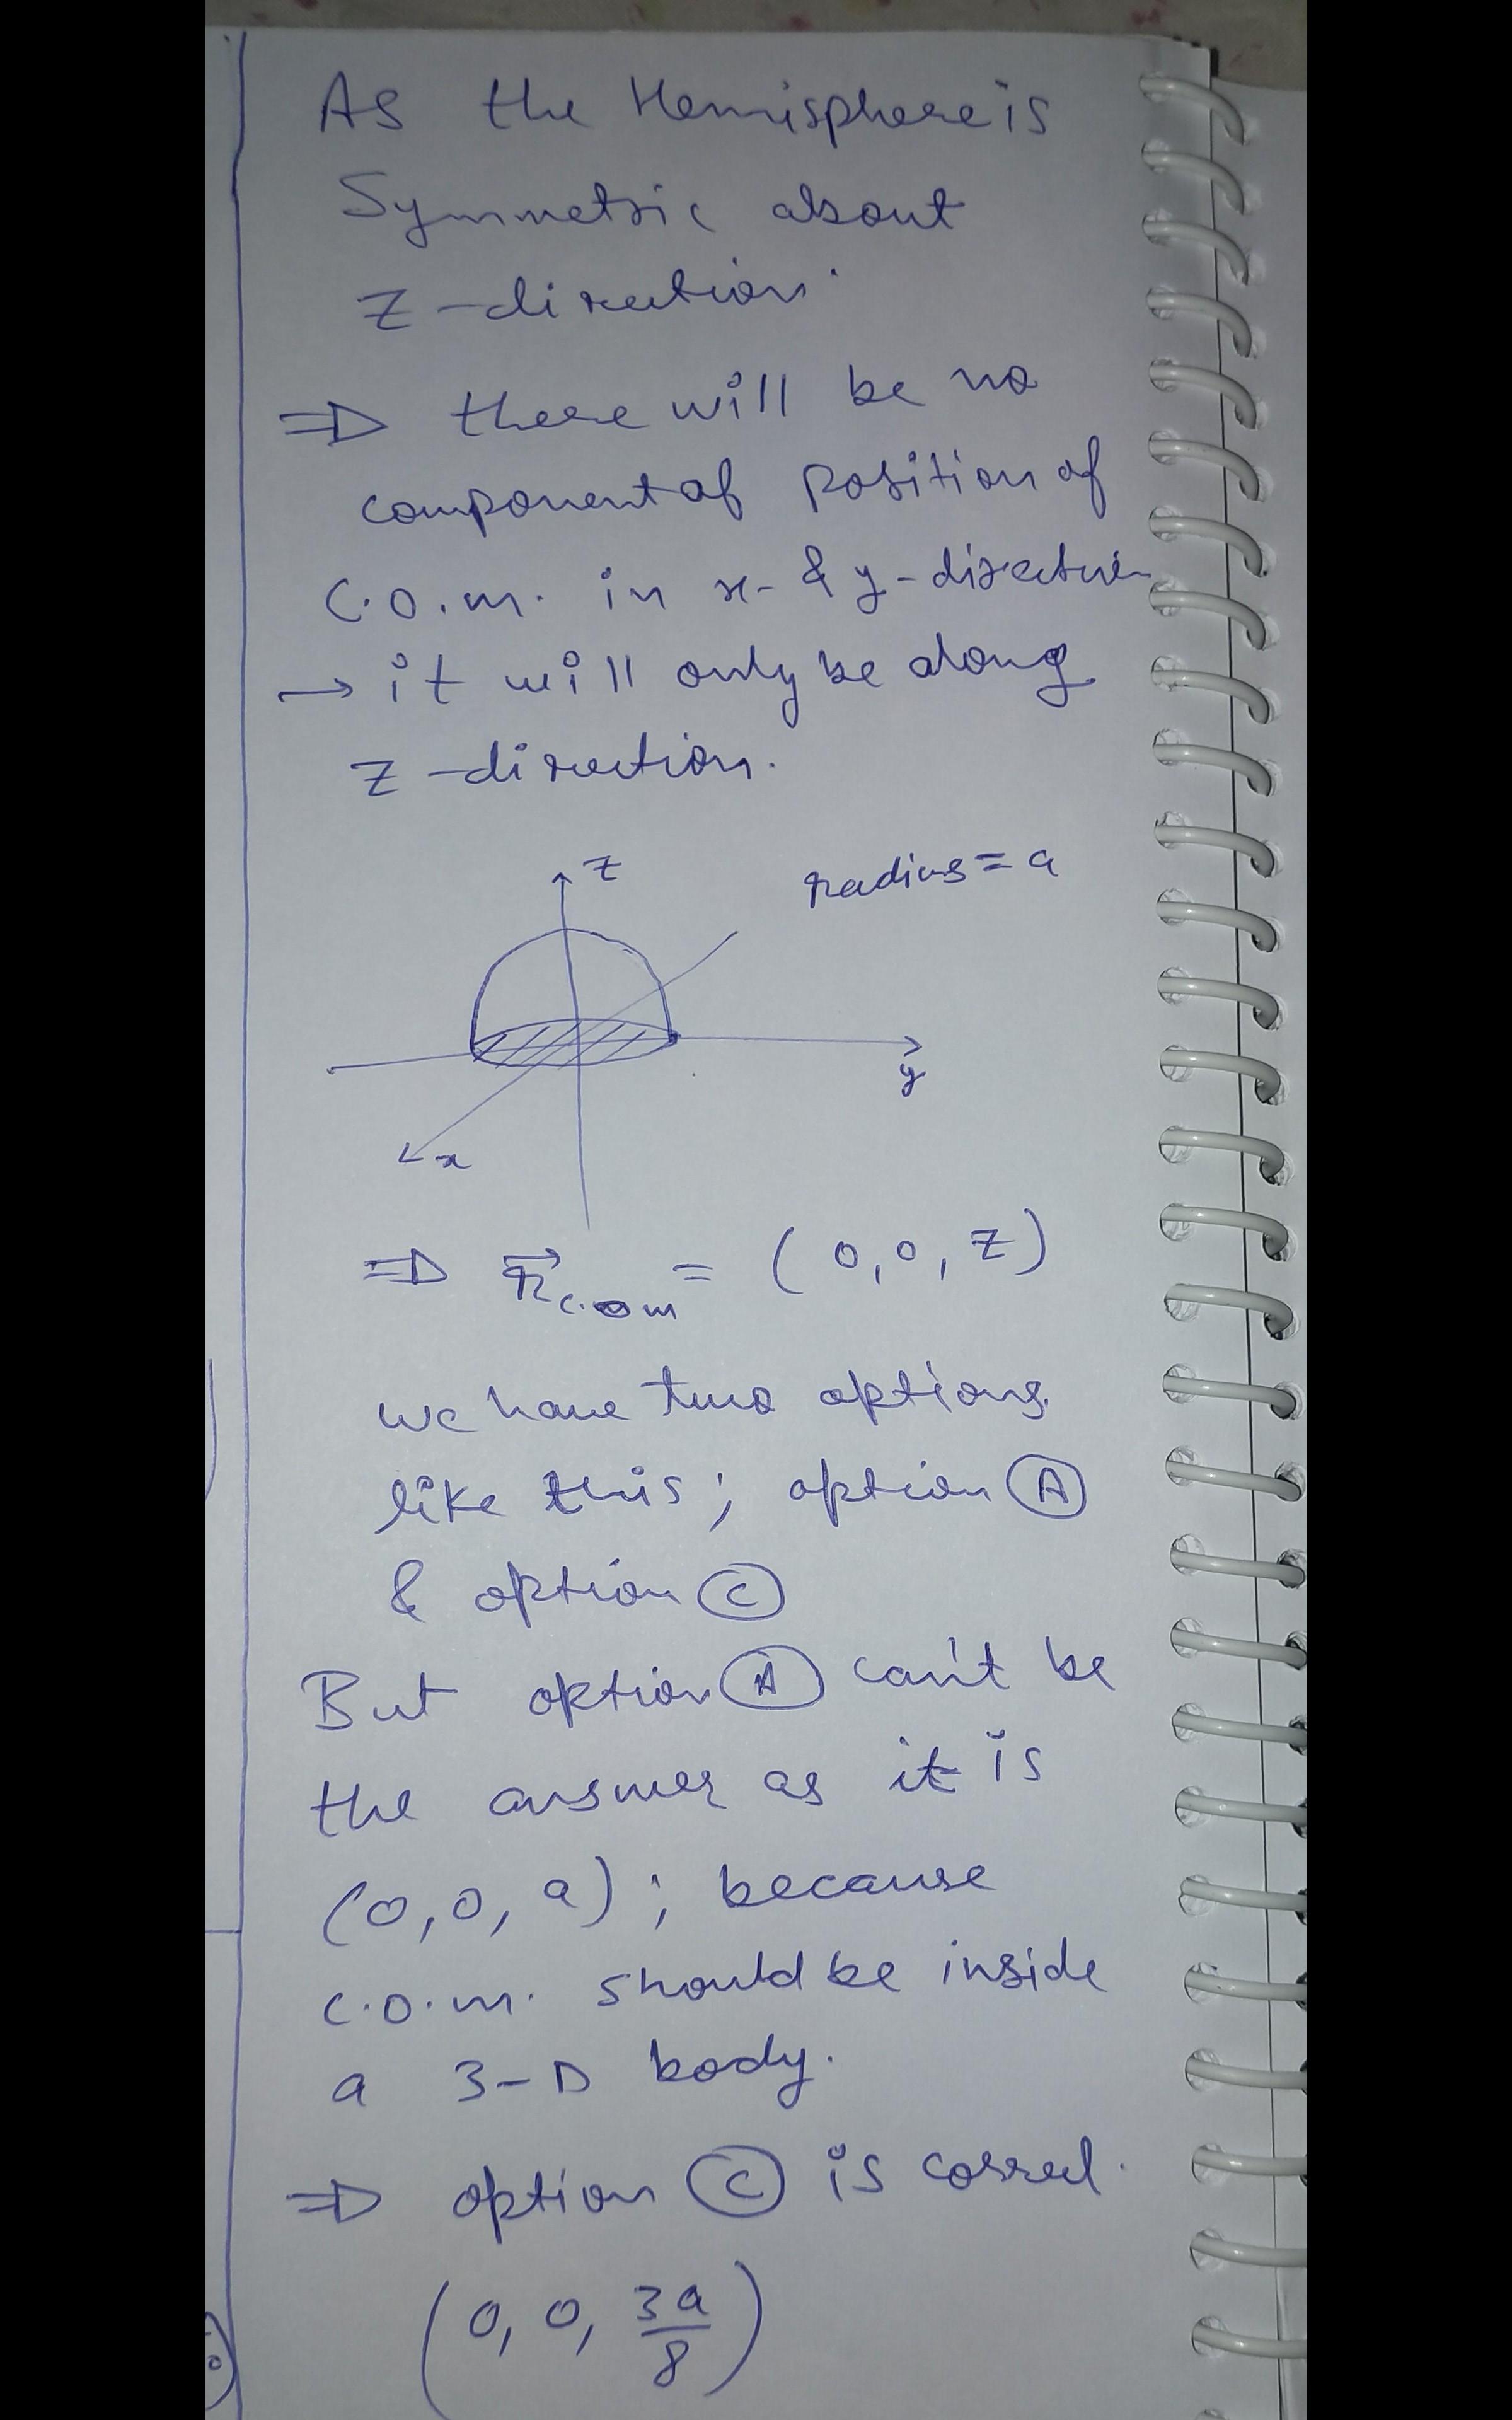 As the Hemisphere is
Symmetric about
z-direction.
⇒ there will be no
component of position of
C.O.m. in x- & y-direction
→ it will only be along
z-direction.
z
radius = a
y
x
⇒ r⃗c.om = (0,0,z)
we have two options
like this; option Ⓐ
& option Ⓒ
But option Ⓐ can't be
the answer as it is
(0,0,a); because
C.O.m. should be inside
a 3-D body.
⇒ option Ⓒ is correct.
(0,0, 3a/8)